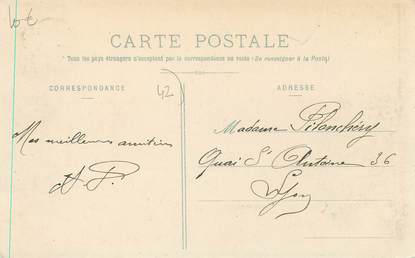 10€
CARTE POSTALE
Tous les pays étrangers n'acceptent pas la correspondance au recto (Se renseigner à la Poste)
CORRESPONDANCE
ADRESSE
42
Mes meilleures amitiés
A. P.
Madame Pitonchéry
Quai St Antoine 36
Lyon